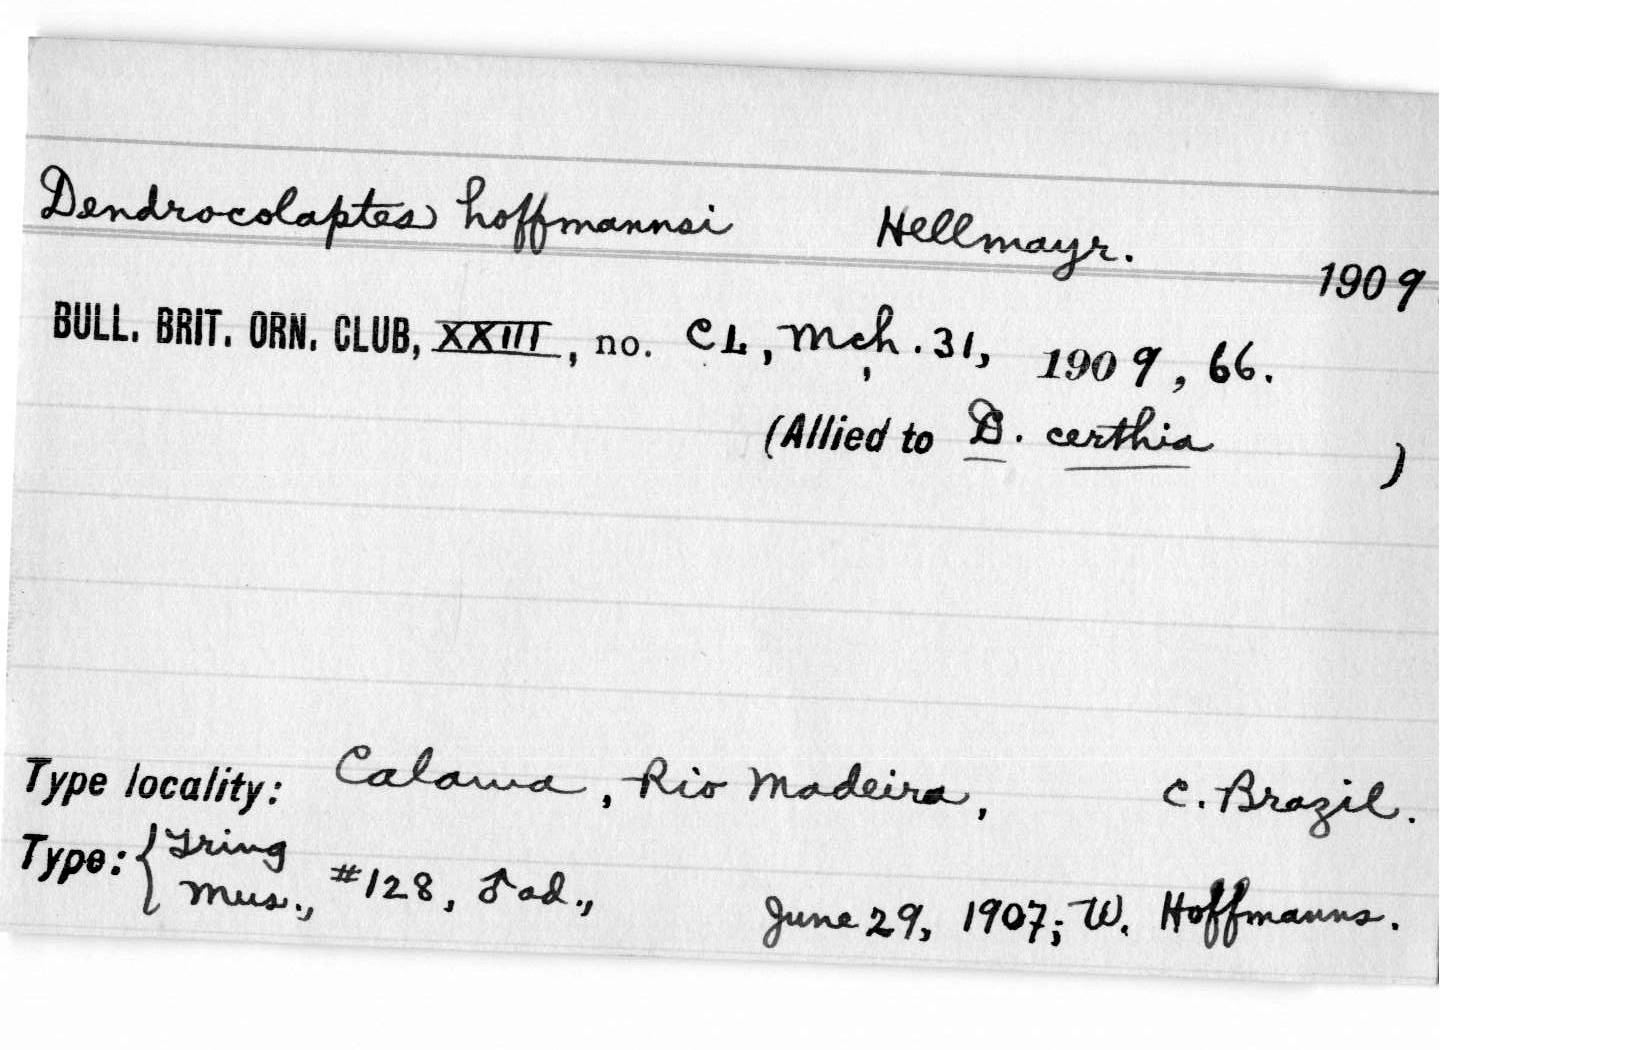 Dendrocolaptes hoffmannsi Hellmayr. 1909
BULL. BRIT. ORN. CLUB, XXIII, no. CL, Mch. 31, 1909, 66.
(Allied to D. certhia )
Type locality: Calama, Rio Madeira, C. Brazil.
Type: { Tring
Mus., #128, ♂ ad., June 29, 1907; W. Hoffmanns.